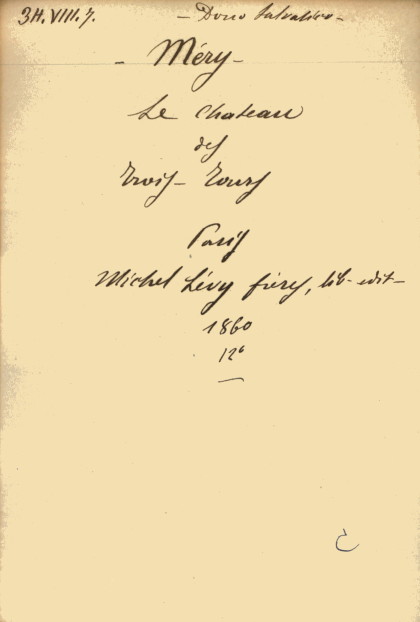 34. VIII. 7. - Dono Salvatico -
- Méry -
Le Chateau
des
Trois - Tours
Paris
Michel Lévy frères, lib - edit -
1860
12°